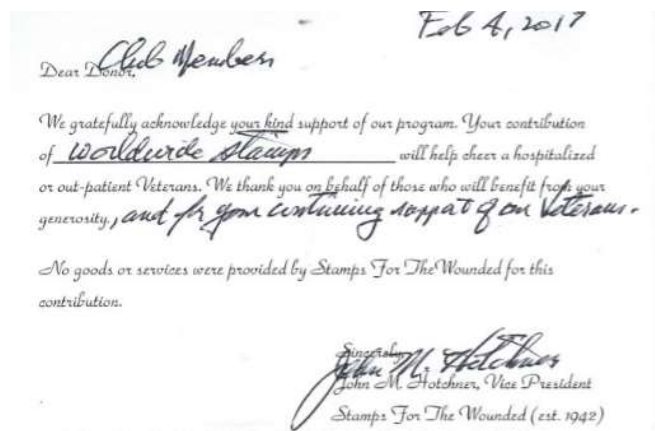 Feb 4, 2017
Dear Donor, Club Members
We gratefully acknowledge your kind support of our program. Your contribution
of worldwide stamps will help cheer a hospitalized
or out-patient Veterans. We thank you on behalf of those who will benefit from your
generosity., and for your continuing support of our Veterans.
No goods or services were provided by Stamps For The Wounded for this
contribution.
Sincerely,
John M. Hotchner
John M. Hotchner, Vice President
Stamps For The Wounded (est. 1942)